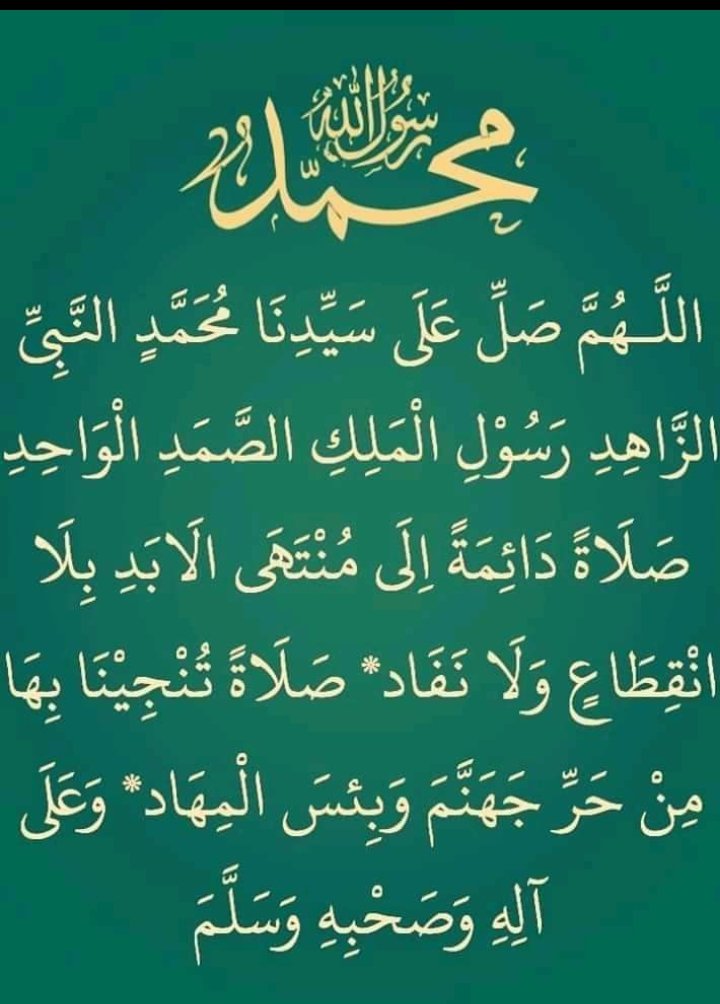 محمد رسول الله
اللَّـهُمَّ صَلِّ عَلَى سَيِّدِنَا مُحَمَّدٍ النَّبِىِّ
الزَّاهِدِ رَسُوْلِ الْمَلِكِ الصَّمَدِ الْوَاحِدِ
صَلَاةً دَائِمَةً اِلَى مُنْتَهَى الَابَدِ بِلَا
انْقِطَاعٍ وَلَا نَفَاد* صَلَاةً تُنْجِيْنَا بِهَا
مِنْ حَرِّ جَهَنَّمَ وَبِئسَ الْمِهَاد* وَعَلَى
آلِهِ وَصَحْبِهِ وَسَلَّمَ